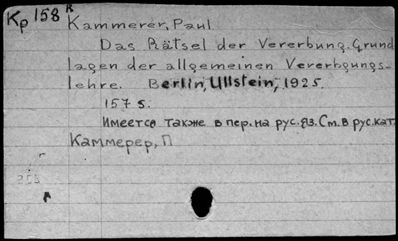 Kp 158 R
Kammerer, Paul
Das Rätsel der Vererbung. Grund
lagen der allgemeinen Vererbgungs-
lehre. Berlin, Ullstein, 1925.
157 s.
Имеется также в пер. на рус. яз. См. в рус. кат.
Каммерер, П